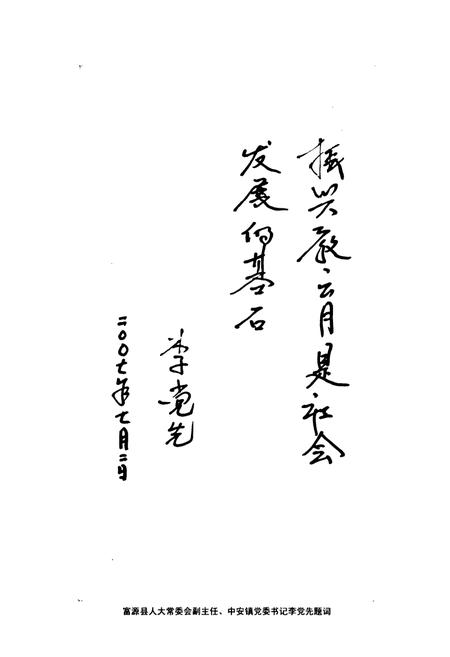 振兴教育是社会
发展的基石
李党先
二00七年七月二日
富源县人大常委会副主任、中安镇党委书记李党先题词